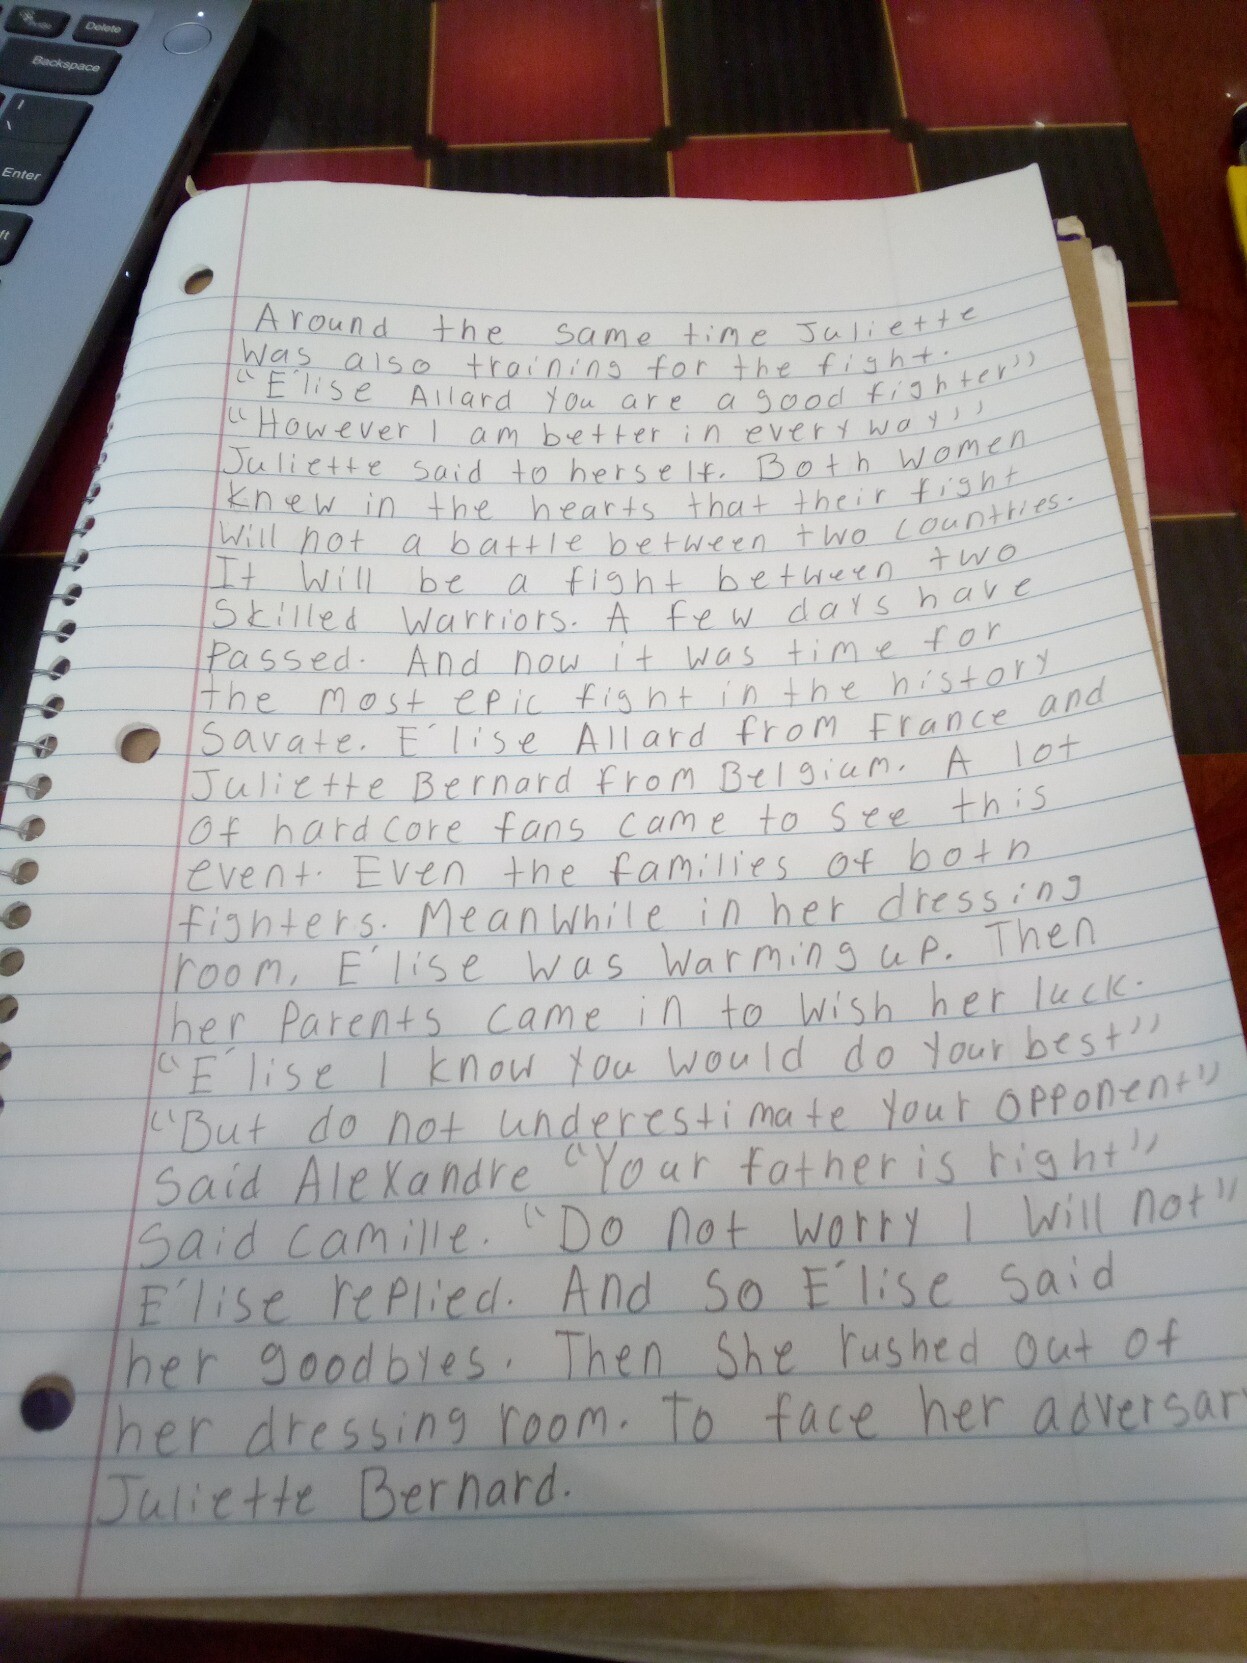 Delete
Backspace
Enter
Around the same time Juliette
was also training for the fight.
“E´lise Allard you are a good fighter”
“However I am better in every way”
Juliette said to herself. Both women
knew in the hearts that their fight
will not a battle between two countries.
It will be a fight between two
skilled warriors. A few days have
passed. And now it was time for
the most epic fight in the history
Savate. E´lise Allard from France and
Juliette Bernard from Belgium. A lot
of hardcore fans came to see this
event. Even the families of both
fighters. Meanwhile in her dressing
room, E´lise was warming up. Then
her parents came in to wish her luck.
“E´lise I know you would do your best”
“But do not underestimate your opponent”
said Alexandre “Your father is right”
said Camille. “Do not worry I will not”
E´lise replied. And so E´lise said
her goodbyes. Then she rushed out of
her dressing room. To face her adversary
Juliette Bernard.